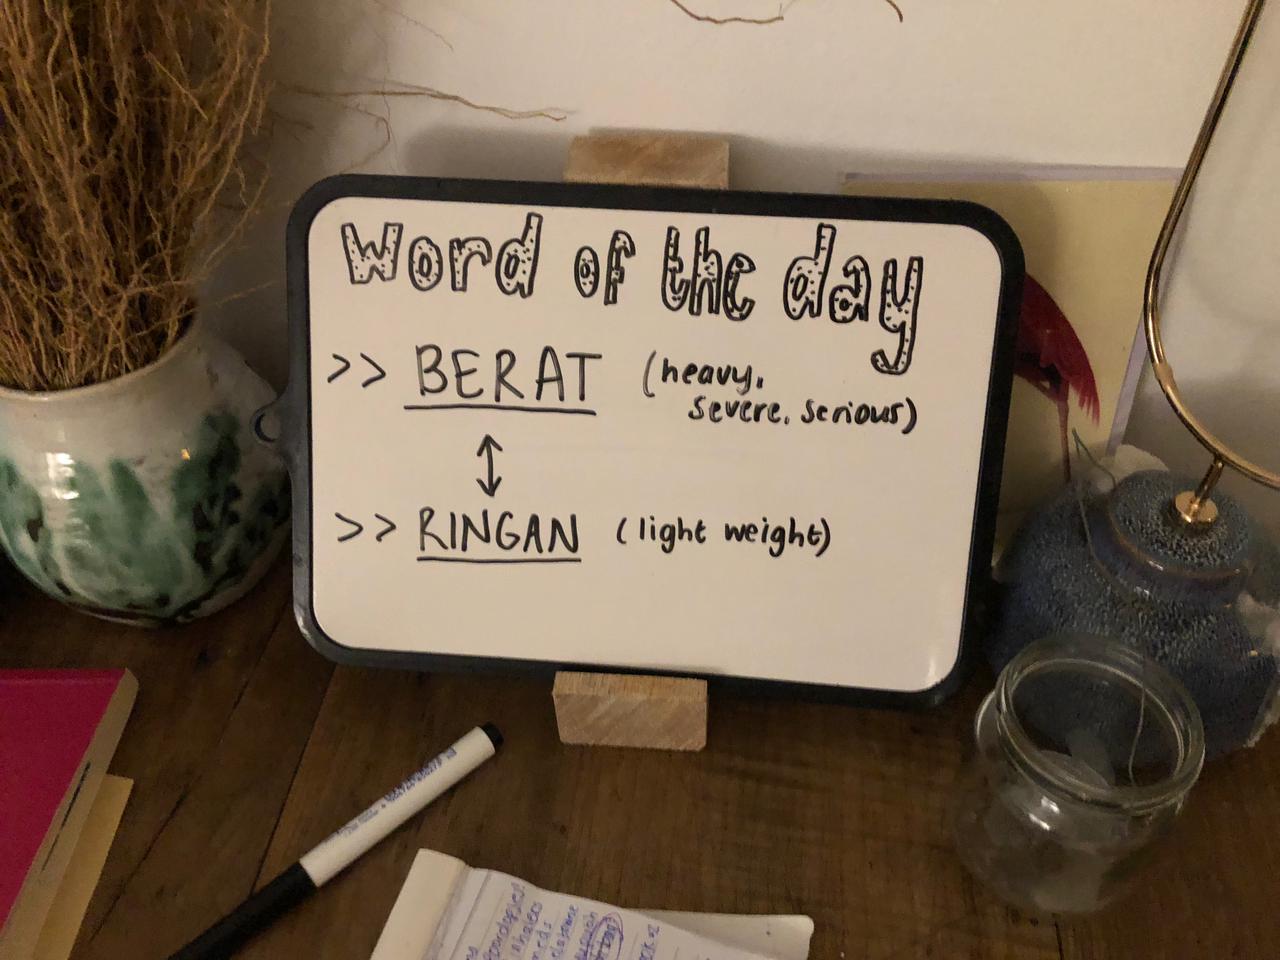 Word of the day
>> BERAT (heavy,
severe, serious)
↕
>> RINGAN (light weight)
inhalers